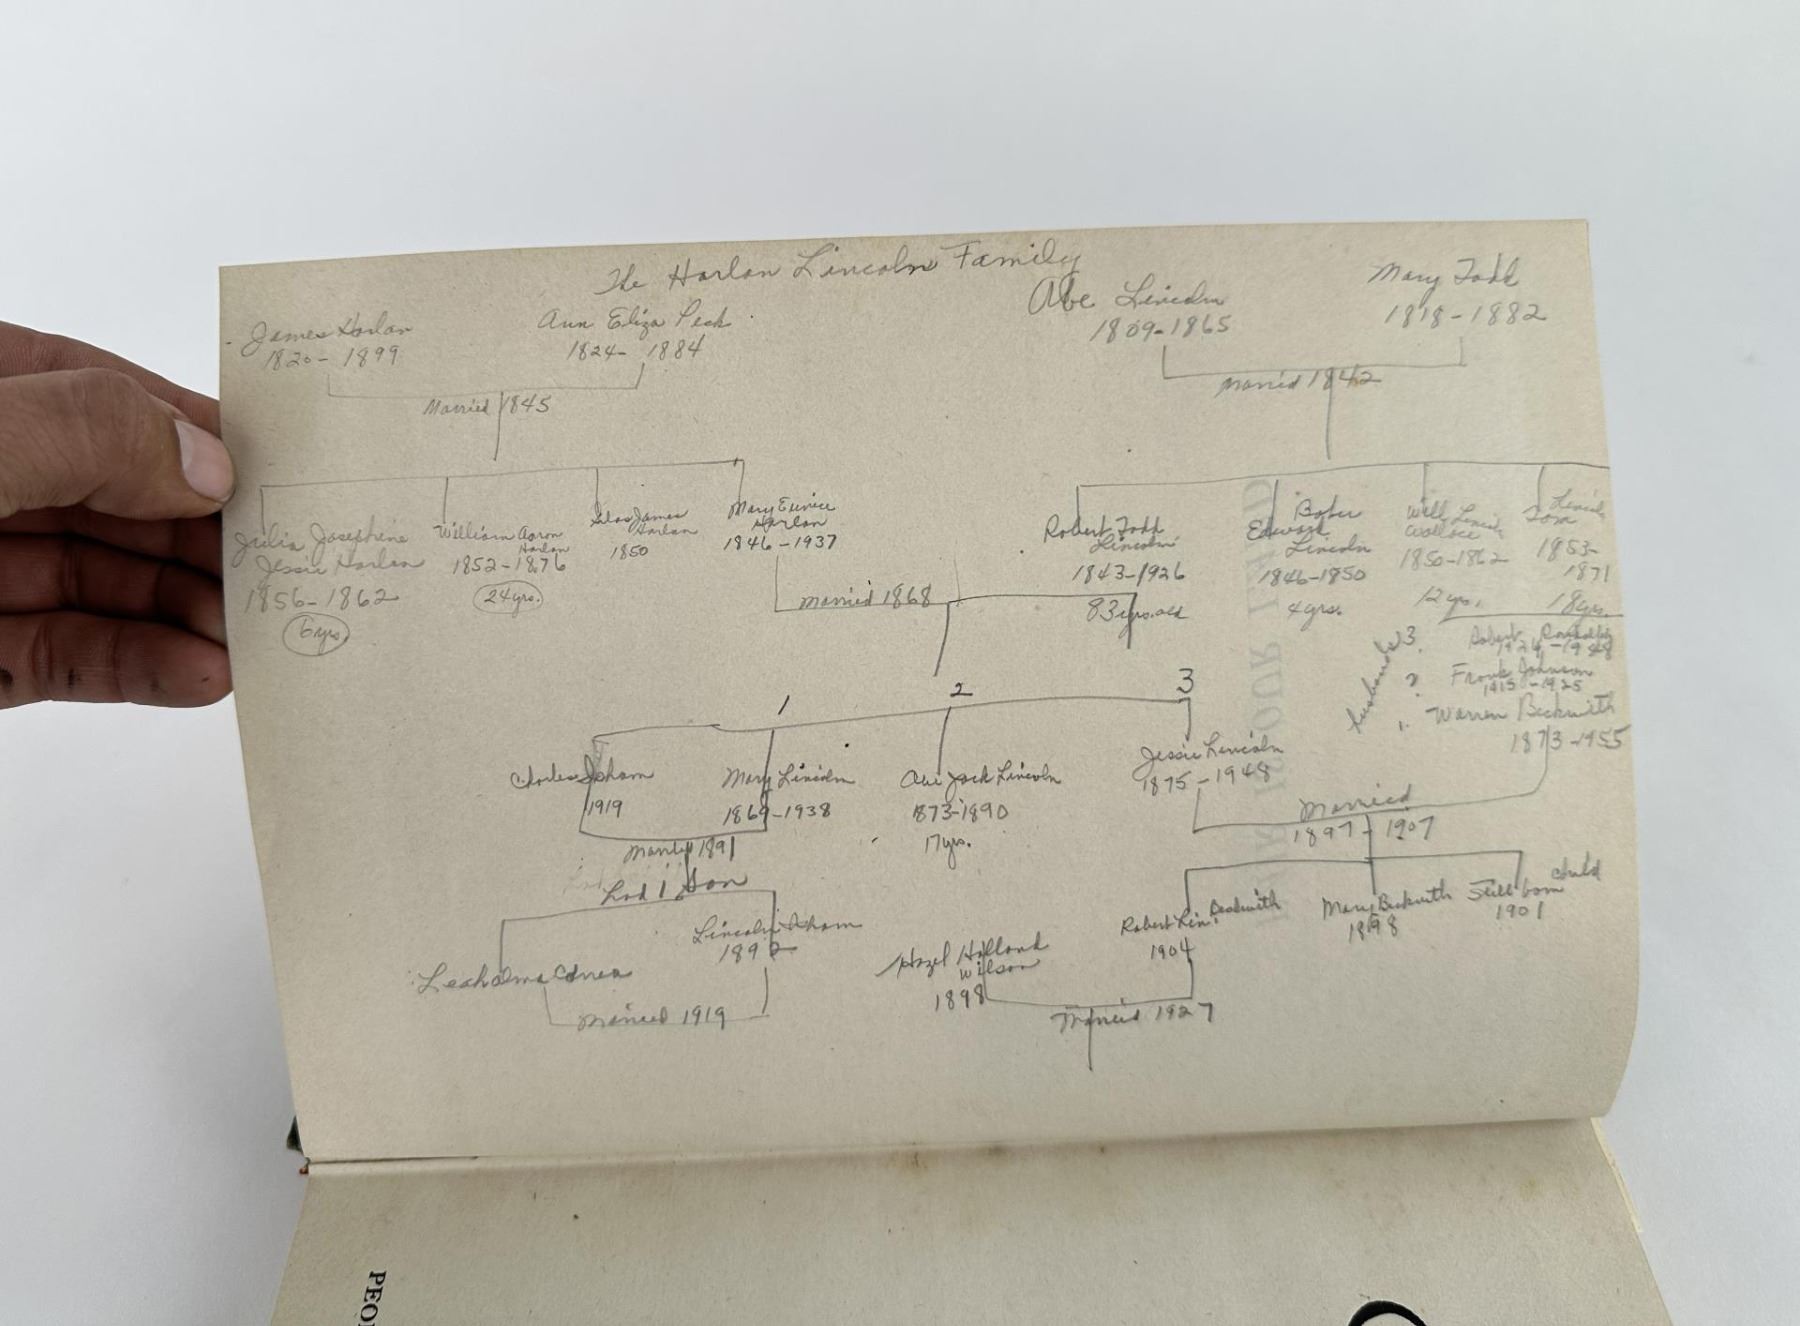 The Harlan Lincoln Family
James Harlan
1820-1899
Ann Eliza Peck
1824-1884
Married 1845
Abe Lincoln
1809-1865
Mary Todd
1818-1882
Married 1842
Julia Josephine
Jessie Harlan
1856-1862
6yrs.
William Aaron
Harlan
1852-1876
24yrs.
Silas James
Harlan
1850
Mary Eunice
Harlan
1846-1937
Married 1868
Robert Todd
Lincoln
1843-1926
83yrs.old
Edward
Lincoln
1846-1850
4yrs.
Will Lincoln
Wallace
1850-1862
12yrs.
Lincoln
Tom
1853-
1871
18yrs.
husbands
3.
Robert
?
Frank Johnson
1915-1925
1.
Warren Beckwith
1873-1955
1
2
3
Charles Isham
1919
Mary Lincoln
1869-1938
Married 1891
Abe Jack Lincoln
1873-1890
17yrs.
Jessie Lincoln
1875-1948
Married
1897-1907
had 1 son
Lincoln Isham
1892
Leahalma Correa
Married 1919
Robert Lin. Beckwith
1904
Mary Beckwith
1898
Still born child
1901
Hazel Holland
Wilson
1898
Married 1927
PEO